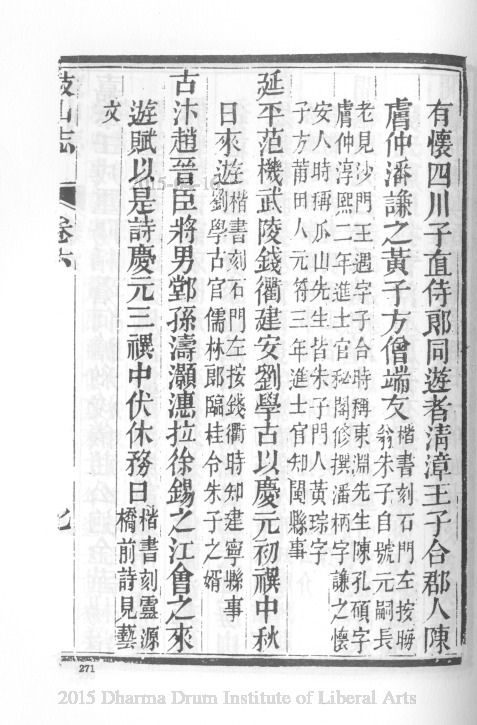 有懷四川子直侍郎同遊者清漳王子合郡人陳
膚仲潘謙之黃子方僧端友楷書刻石門左按晦
翁朱子自號元嗣長
老見沙門王遇字子合時稱東淵先生陳孔碩字
膚仲淳熙二年進士官秘閣修撰潘柄字謙之懷
安人時稱瓜山先生皆朱子門人黃琮字
子方莆田人元符三年進士官知閩縣事
延平范機武陵錢衢建安劉學古以慶元初禩中秋
日來遊楷書刻石門左按錢衢時知建寧縣事
劉學古官儒林郎臨桂令朱子之婿
古汴趙晉臣將男鄞孫濤灝漶拉徐錫之江會之來
遊賦以是詩慶元三禩中伏休務日楷書刻靈源
橋前詩見藝
文
鼓山志
卷六
七
271
2015 Dharma Drum Institute of Liberal Arts